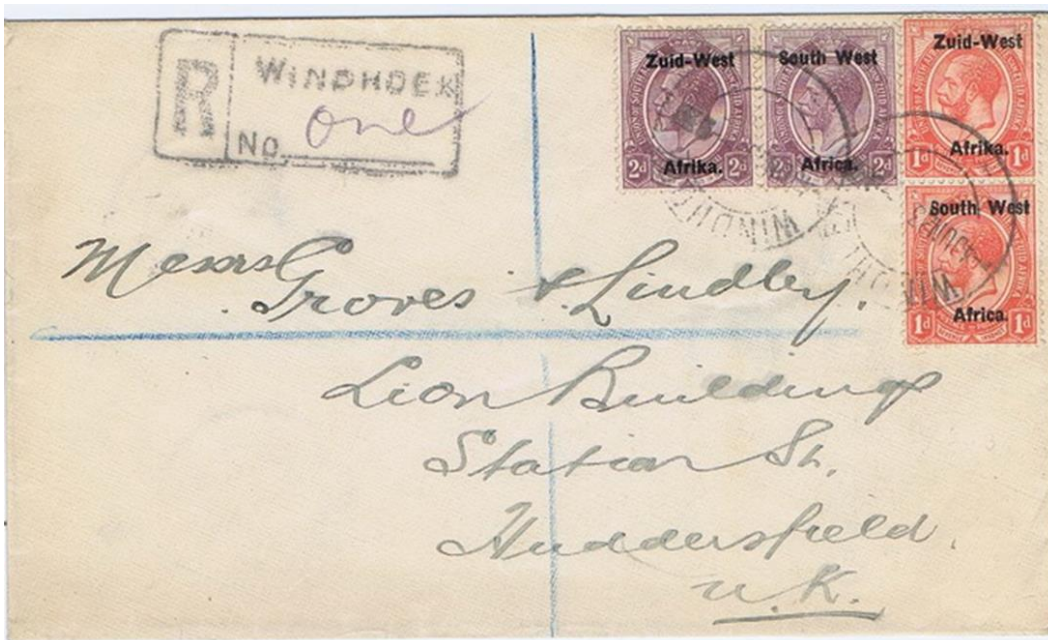 R WINDHOEK
No. one
Zuid-West
Afrika.
2d 2d
South West
Africa.
2d 2d
Zuid-West
Afrika.
1d 1d
South West
Africa.
1d 1d
Messrs Groves & Lindley.
Lion Buildings
Station St.
Huddersfield.
U.K.